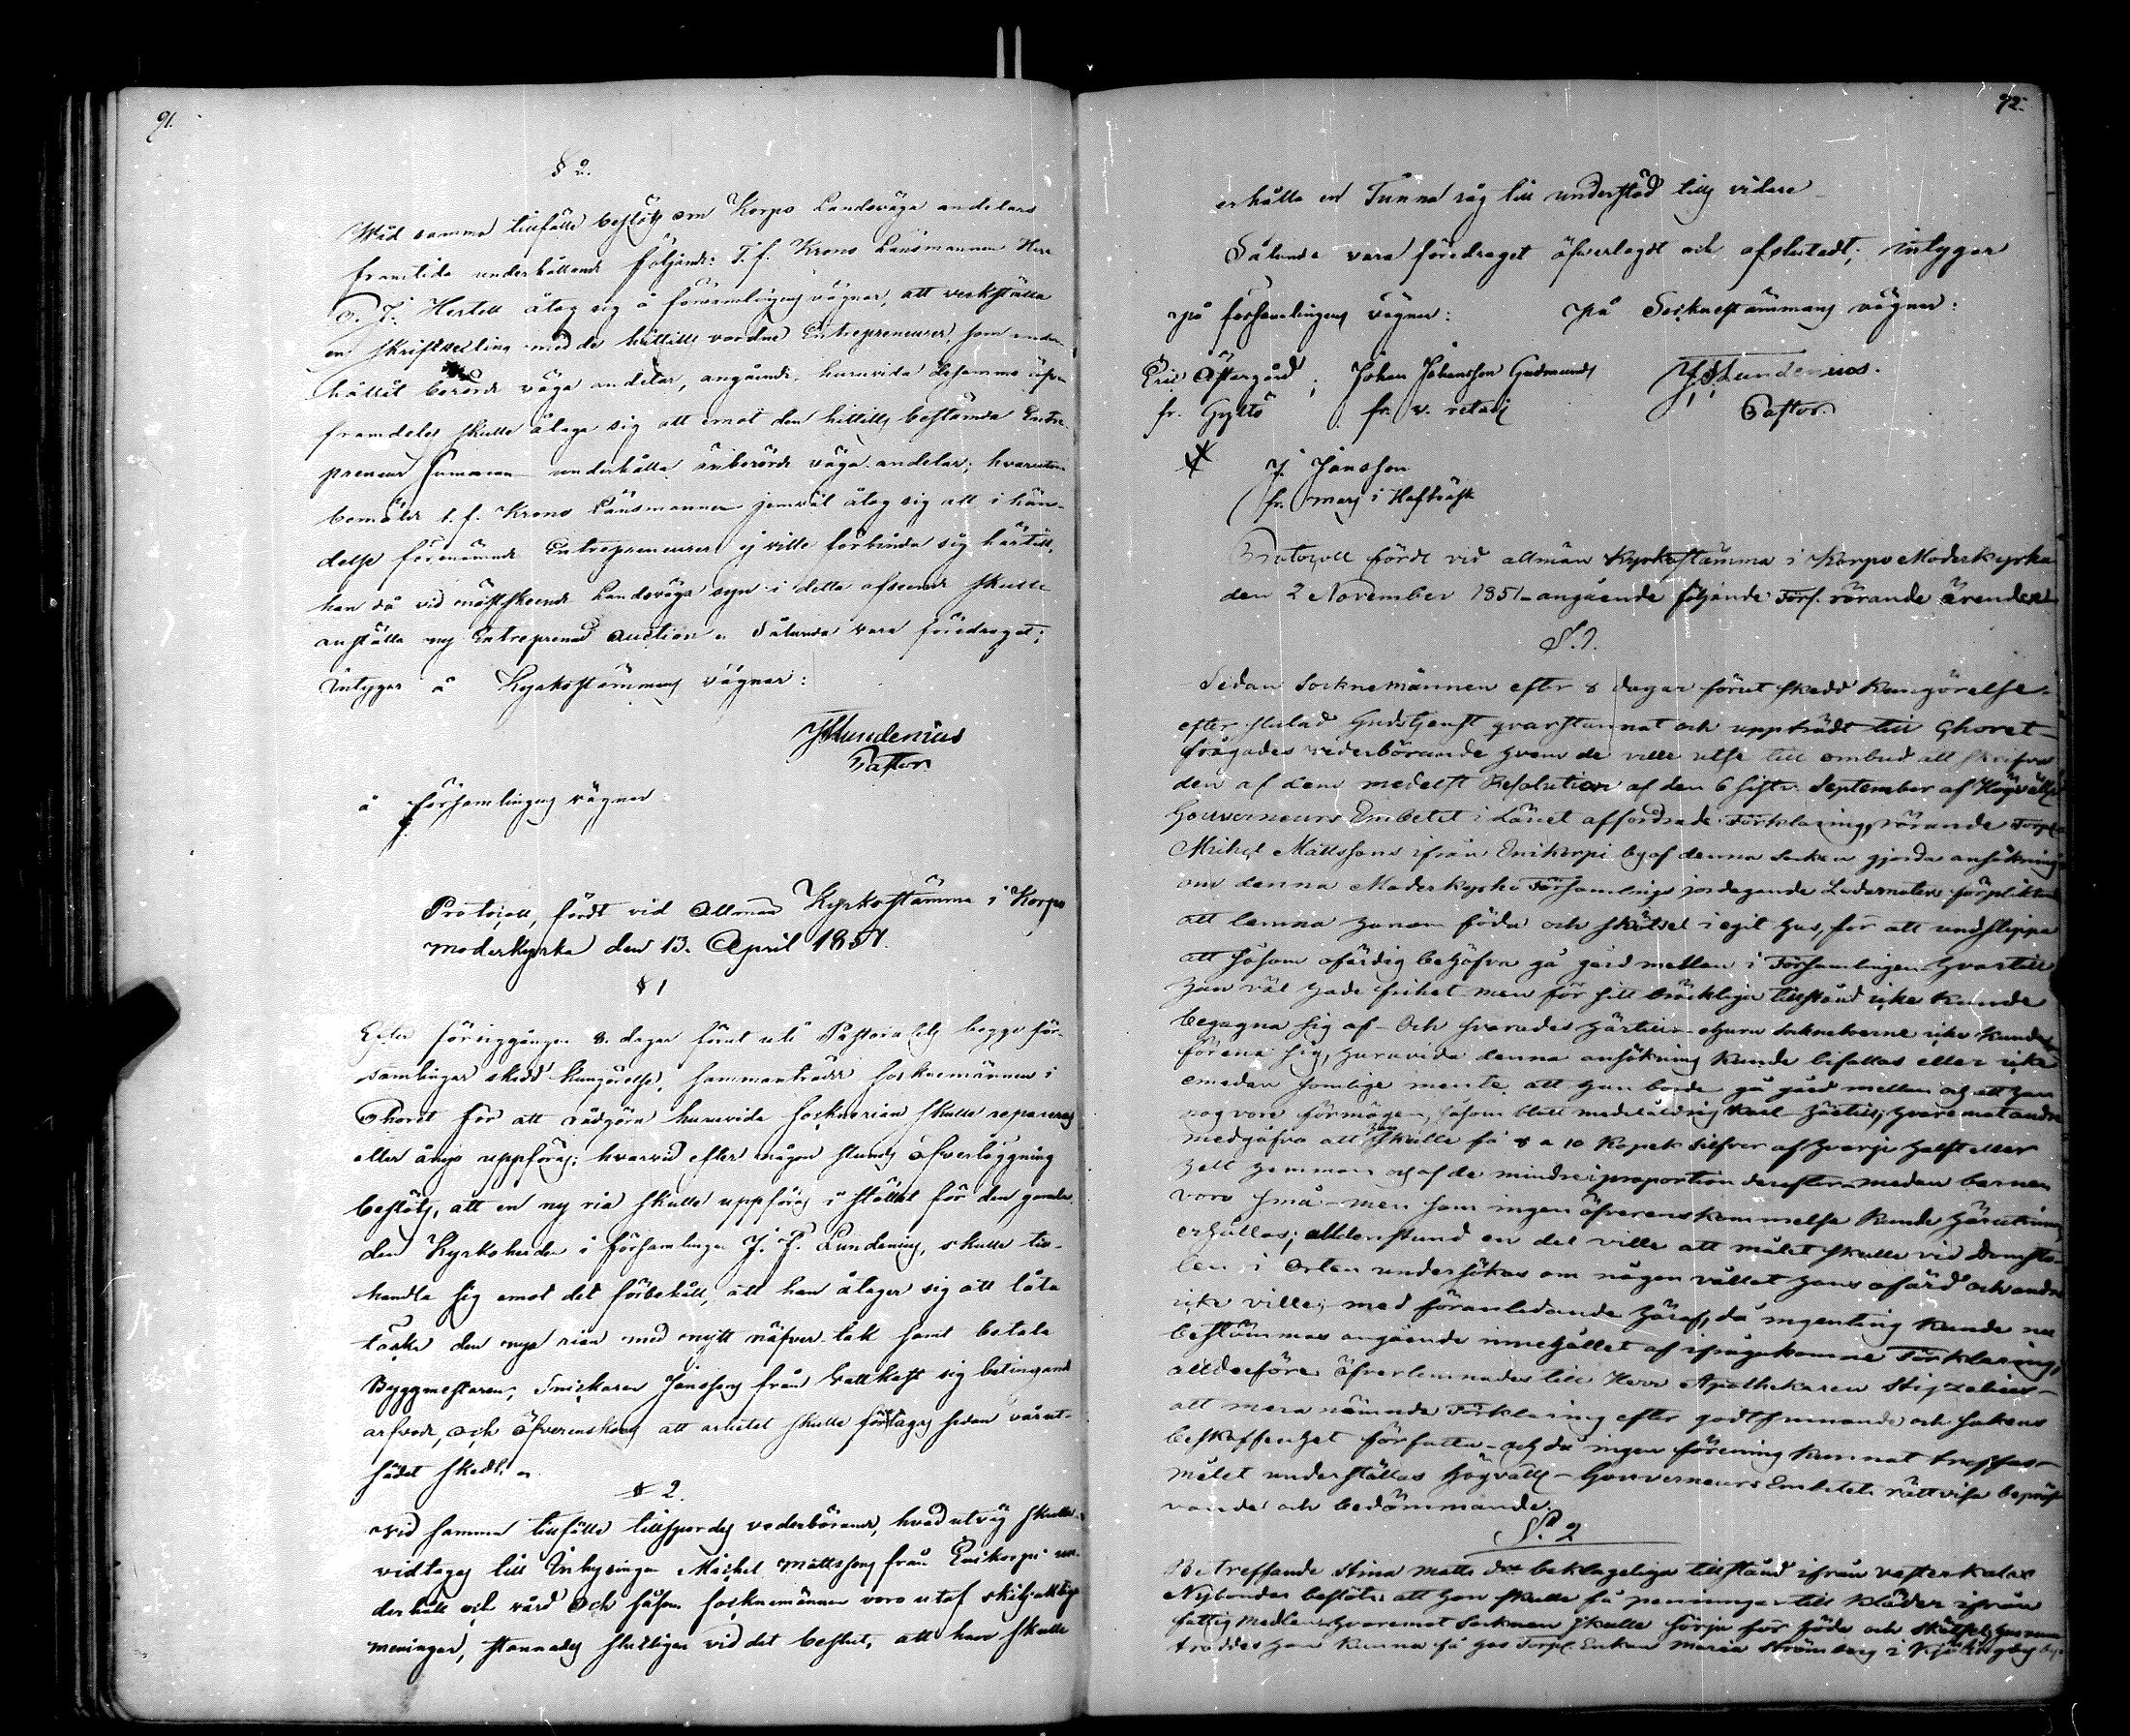 91.
§ 2.
Wid samma tillfälle beslöts om Korpo Landsväga andelars
framtida underhållande följande: T. f. Krono Länsmannen Herr
J. Hertell åtog sig å församlingens vägnar, att verkställa
en skriftvexling med de hittills vordne Entrepreneurer, som under-
hållit berörde väga andelar, angående huruvida desamma äfven
framdeles skulle åtaga sig att emot den hittills bestämda Entre-
preneur summan underhålla änberörde väga andelar; hvarutom
bemälde t. f. Krono Länsmannen jemväl åtog sig att, i hän-
delse förenämnde Entreprenörer ej ville förbinda sig härtill,
han då vid näst skeende Landsväga syn i detta afseende skulle
anställa ny Entreprenad auction. Sålunda vara föredraget;
intygar å Kyrkostämmans vägnar:
J P Lundenius
Pastor.
å församlingens vägnar
Protocoll, fördt vid Allmän Kyrkostämma i Korpo
moderkyrka den 13. April 1851.
§ 1
Efter föregången 8. dagar förut uti Pastoratets begge för-
samlingar skedd kungörelse, sammanträdde socknemännen i
Choret för att rådgöra huruvida socknerian skulle repareras
eller ånyo uppföras; hvarvid efter någon stunds öfverläggning
beslöts, att en ny ria skulle uppföras i stället för den gamla
den Kyrkoherden i församlingen J. P. Lundenius, skulle till-
handla sig emot det förbehåll, att han åtager sig att låta
täcka den nya rian med nytt näfver tak samt betala
Byggmestaren, Snickaren Janssons från Wattkast sig betingande
arfvode, och öfverenskoms att arbetet skulle företagas sedan vårut-
sädet skedt.
§ 2.
Vid samma tillfälle tillspordes vederbörande, hvad utväg skulle
vidtagas till Inhysingen Michel Mattssons från Enikorpi un-
derhåll och vård och såsom socknemännen voro utaf skiljaktiga
meningar, stannades slutligen vid det beslut, att han skulle
92.
erhålla en Tunna råg till understöd tills vidare
Sålunda vara föredraget öfverlagdt och afslutadt; intygar
på församlingens vägnar: på Socknestämmans vägnar:
Eric Östergård; Johan Johansson Gudmunds J P Lundenius.
fr. Gyltö fr. v. retais Pastor.
J. Jansson
fr. mars i Hafträsk
Protocoll fördt vid allmän Kyrkostämma i Korpo Moderkyrka
den 2 November 1851 angående följande Förs. rörande ärenden
§. 1.
Sedan Socknemännen efter 8 dagar förut skedd kungörelse
efter slutad Gudstjenst qvarstannat och uppträdt till Choret
frågades vederbörande hvem de ville utse till ombud att skrifva
den af dem medelst Resolution af den 6 sistl. September af Högvälb.
Gouverneurs Embetet i Länet affordrade Förklaring, rörande Torp.
Michel Mattssons ifrån Enikorpi by af denna Socken gjorda ansökning
om denna Moderkyrko Församlings jordägande Ledamöters förpliktande
att lemna honom föda och skötsel i egit hus, för att undslippa
att såsom ofärdig behöfva gå gård mellan i Församlingen hvartill
han väl hade frihet men för sitt bräckliga tillstånd icke kunde
begagna sig af - Och svarades härtill - ehuru sockneboerne icke kunde
förena sig, huruvida denna ansökning kunde bifallas eller icke
emedan somlige mente att han borde gå gård mellan och att han
nog vore förmögen, såsom blott medelåldrig karl härtill; hvaremot andra
medgåfvo att han skulle få 8 a 10 Kopek Silfver af hvarje helft eller
helt hemman och af de mindre i proportion derefter - medan barnen
voro små - men som ingen öfverenskommelse kunde härutinnan
erhållas; alldenstund en del ville att målet skulle vid Domsto-
len i Orten undersökas om någon vållat hans ofärd och andra
icke ville; med föranledande häraf, då ingenting kunde nu
bestämmas angående innehållet af ifrågakomne Förklaring,
alldeeföre öfverlemnades till Herr Apothekaren Stigzelius
att mera nämnde Förklaring efter godtfinnande och sakens
beskaffenhet författa - och då ingen förening kunnat träffas
målet underställas Högvälb. Gouverneurs Embetets rättvisa bepröf-
vande och bedömmande.
§. 2
Beträffande Stina Matts dr beklageliga tillstånd ifrån Vesterkalax
Nybondas beslöts att hon skulle få penningar till kläder ifrån
fattig medlen hvaremot Socknen skulle sörja för föda och skötsel, hvarom
troddes hon kunna få hos Torp. Enkan Maria Strömberg i